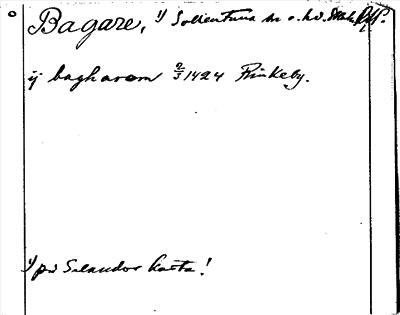 Bagare, 1) Sollentuna sn o. hd. Uppl.
ij bagharom 2/5 1424 Rinkeby.
1) på Selanders karta!